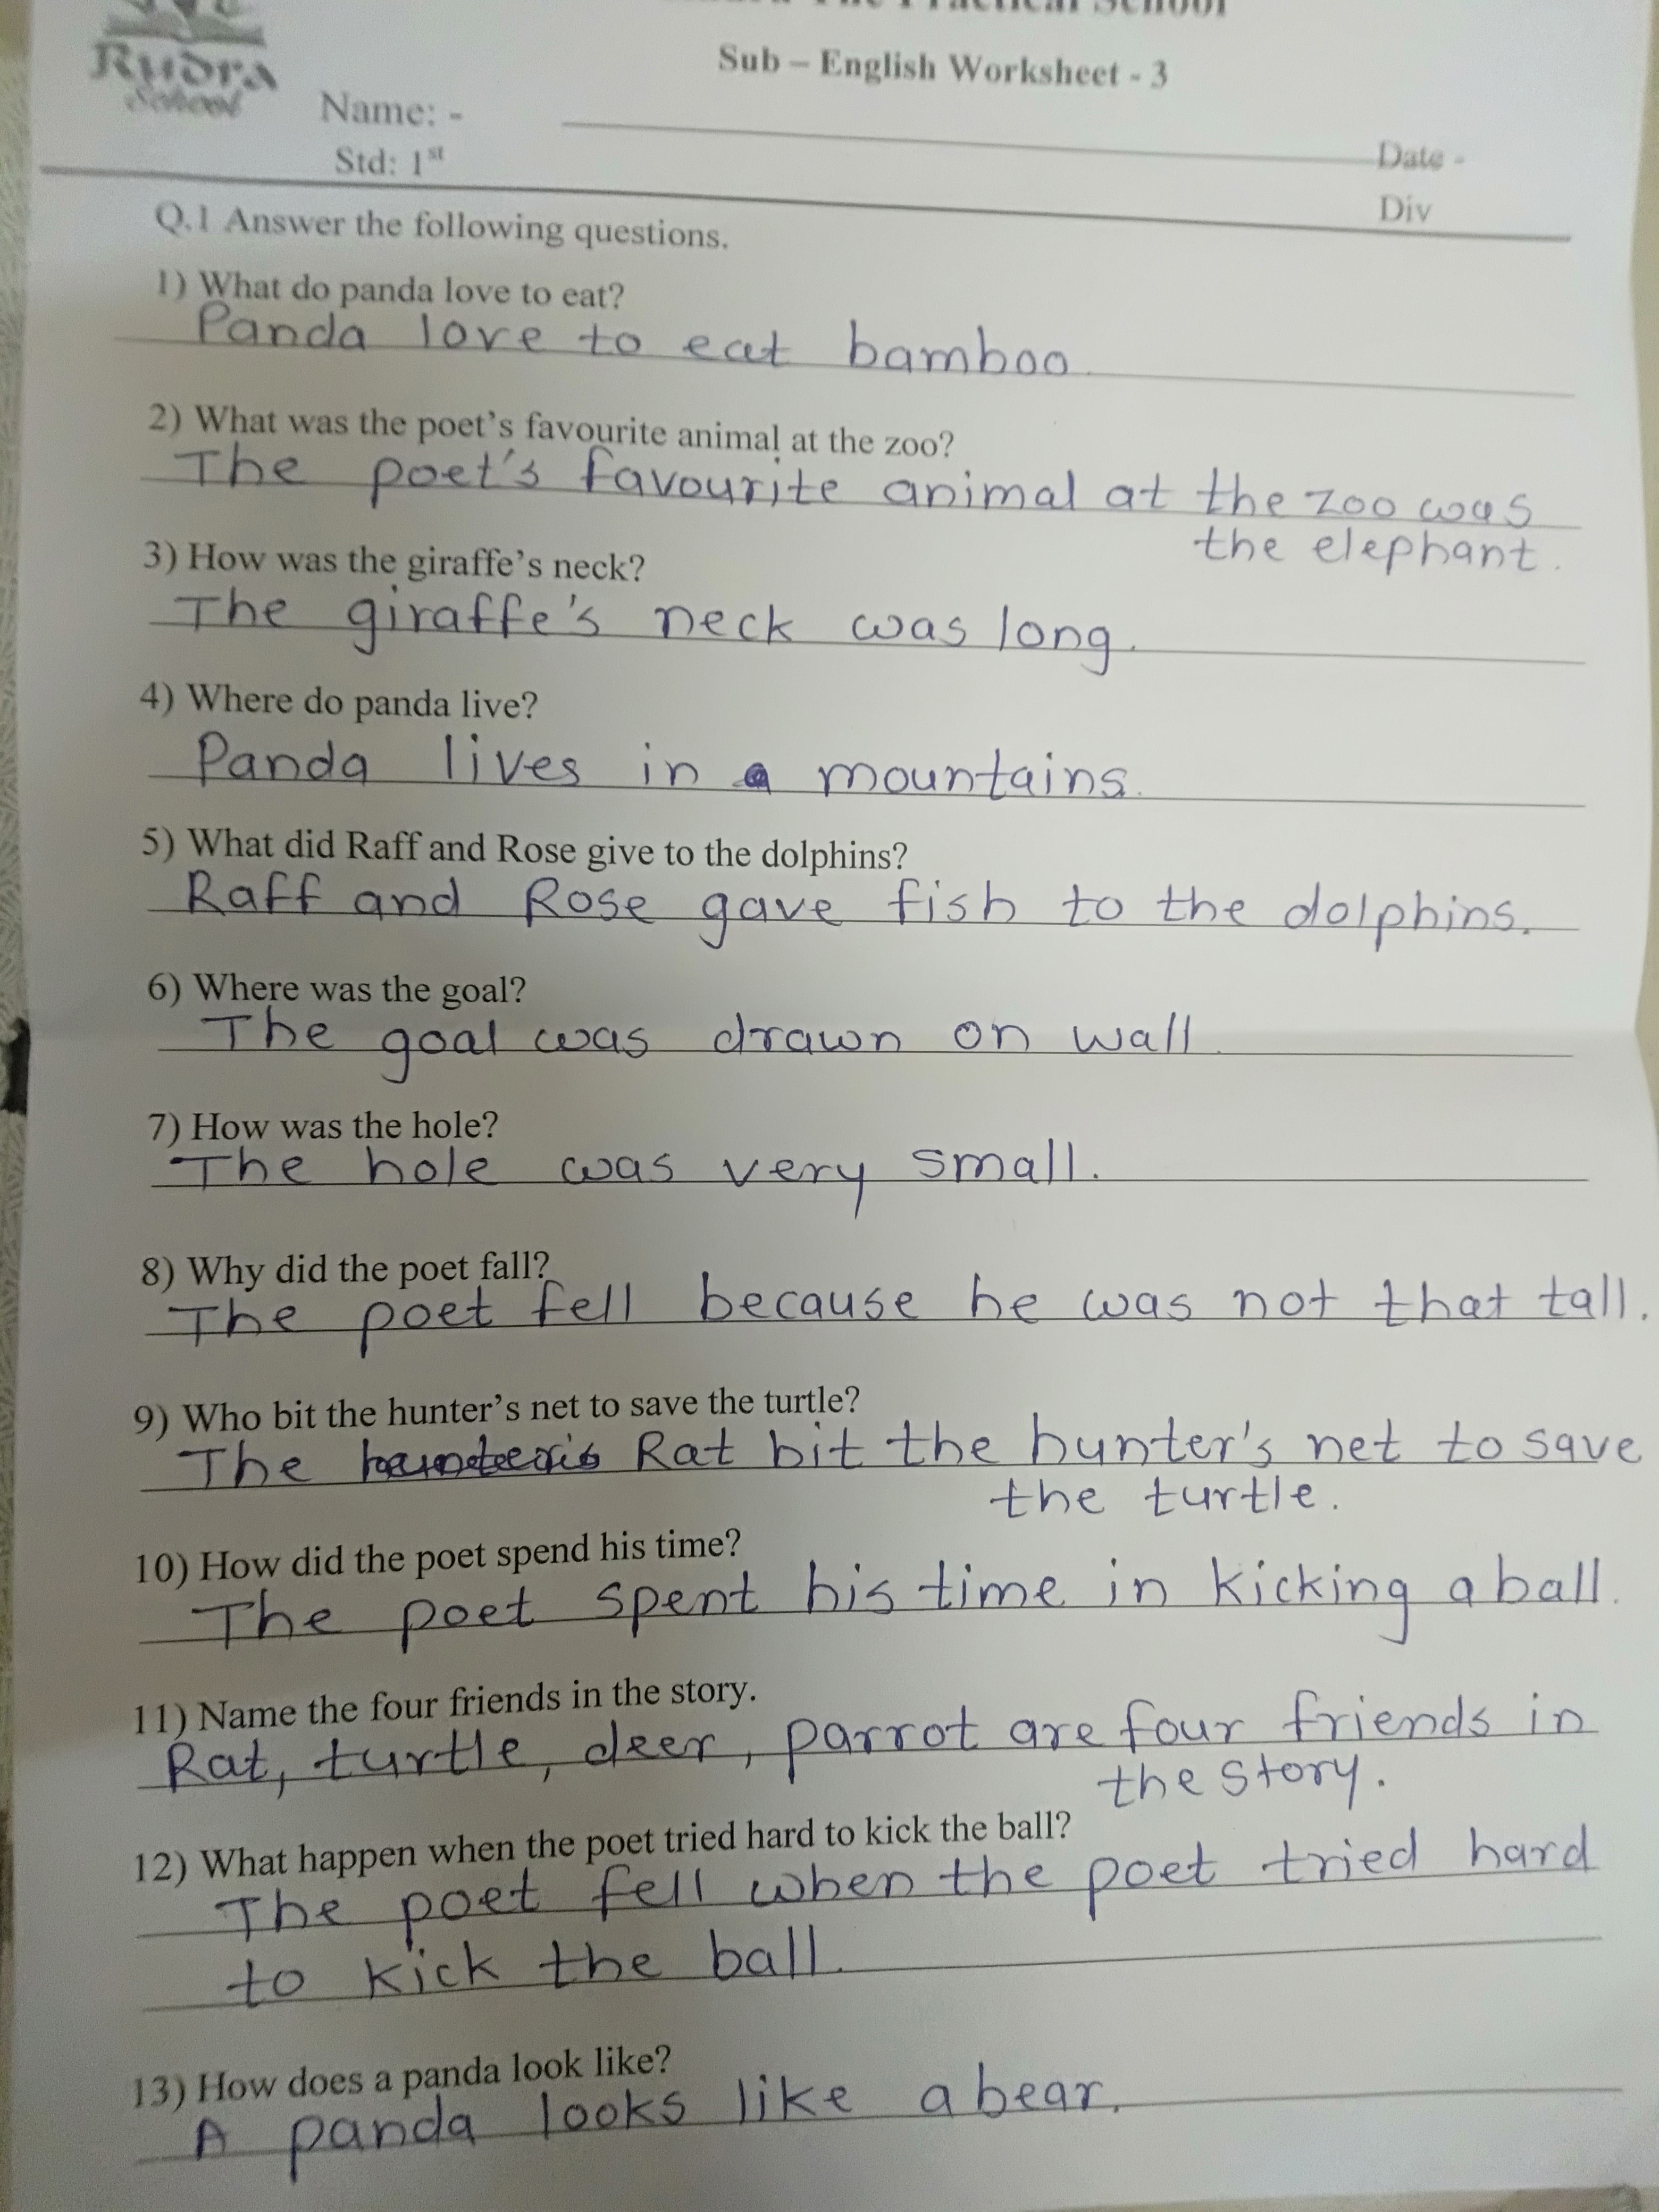 The Practical School
Rudra
School
Sub – English Worksheet - 3
Name: -
Date -
Std: 1st
Div
Q.1 Answer the following questions.
1) What do panda love to eat?
Panda love to eat bamboo.
2) What was the poet's favourite animal at the zoo?
The poet's favourite animal at the zoo was
the elephant.
3) How was the giraffe's neck?
The giraffe's neck was long.
4) Where do panda live?
Panda lives in a mountains.
5) What did Raff and Rose give to the dolphins?
Raff and Rose gave fish to the dolphins.
6) Where was the goal?
The goal was drawn on wall.
7) How was the hole?
The hole was very small.
8) Why did the poet fall?
The poet fell because he was not that tall.
9) Who bit the hunter's net to save the turtle?
The hunter's Rat bit the hunter's net to save
the turtle.
10) How did the poet spend his time?
The poet spent his time in kicking a ball.
11) Name the four friends in the story.
Rat, turtle, deer, parrot are four friends in
the story.
12) What happen when the poet tried hard to kick the ball?
The poet fell when the poet tried hard
to kick the ball.
13) How does a panda look like?
A panda looks like a bear.